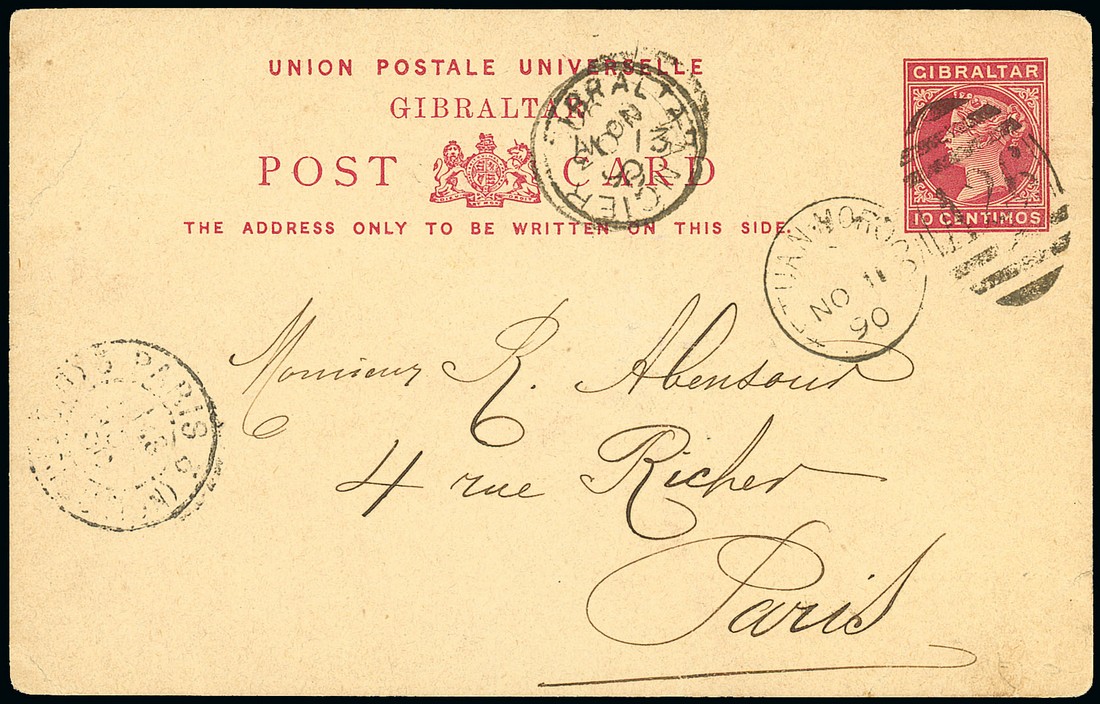 UNION POSTALE UNIVERSELLE
GIBRALTAR
POST CARD
THE ADDRESS ONLY TO BE WRITTEN ON THIS SIDE.
GIBRALTAR
10 CENTIMOS
GIBRALTAR
NO 13
90
TANGIER
TETUAN-MOROCCO
NO 11
90
PARIS
Monsieur R. Abensour
4 rue Richer
Paris